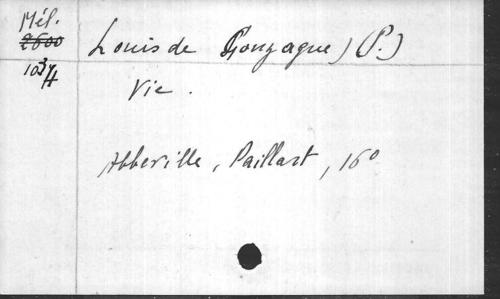 Mél.
2600
103/4
Louis de Gonzague) (P.)
Vie.
Abbeville, Paillart, 16°